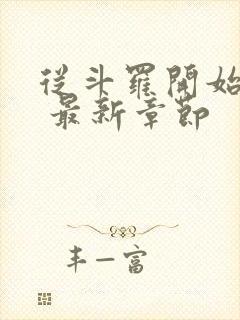 從斗羅開始
最新章節
丰一富